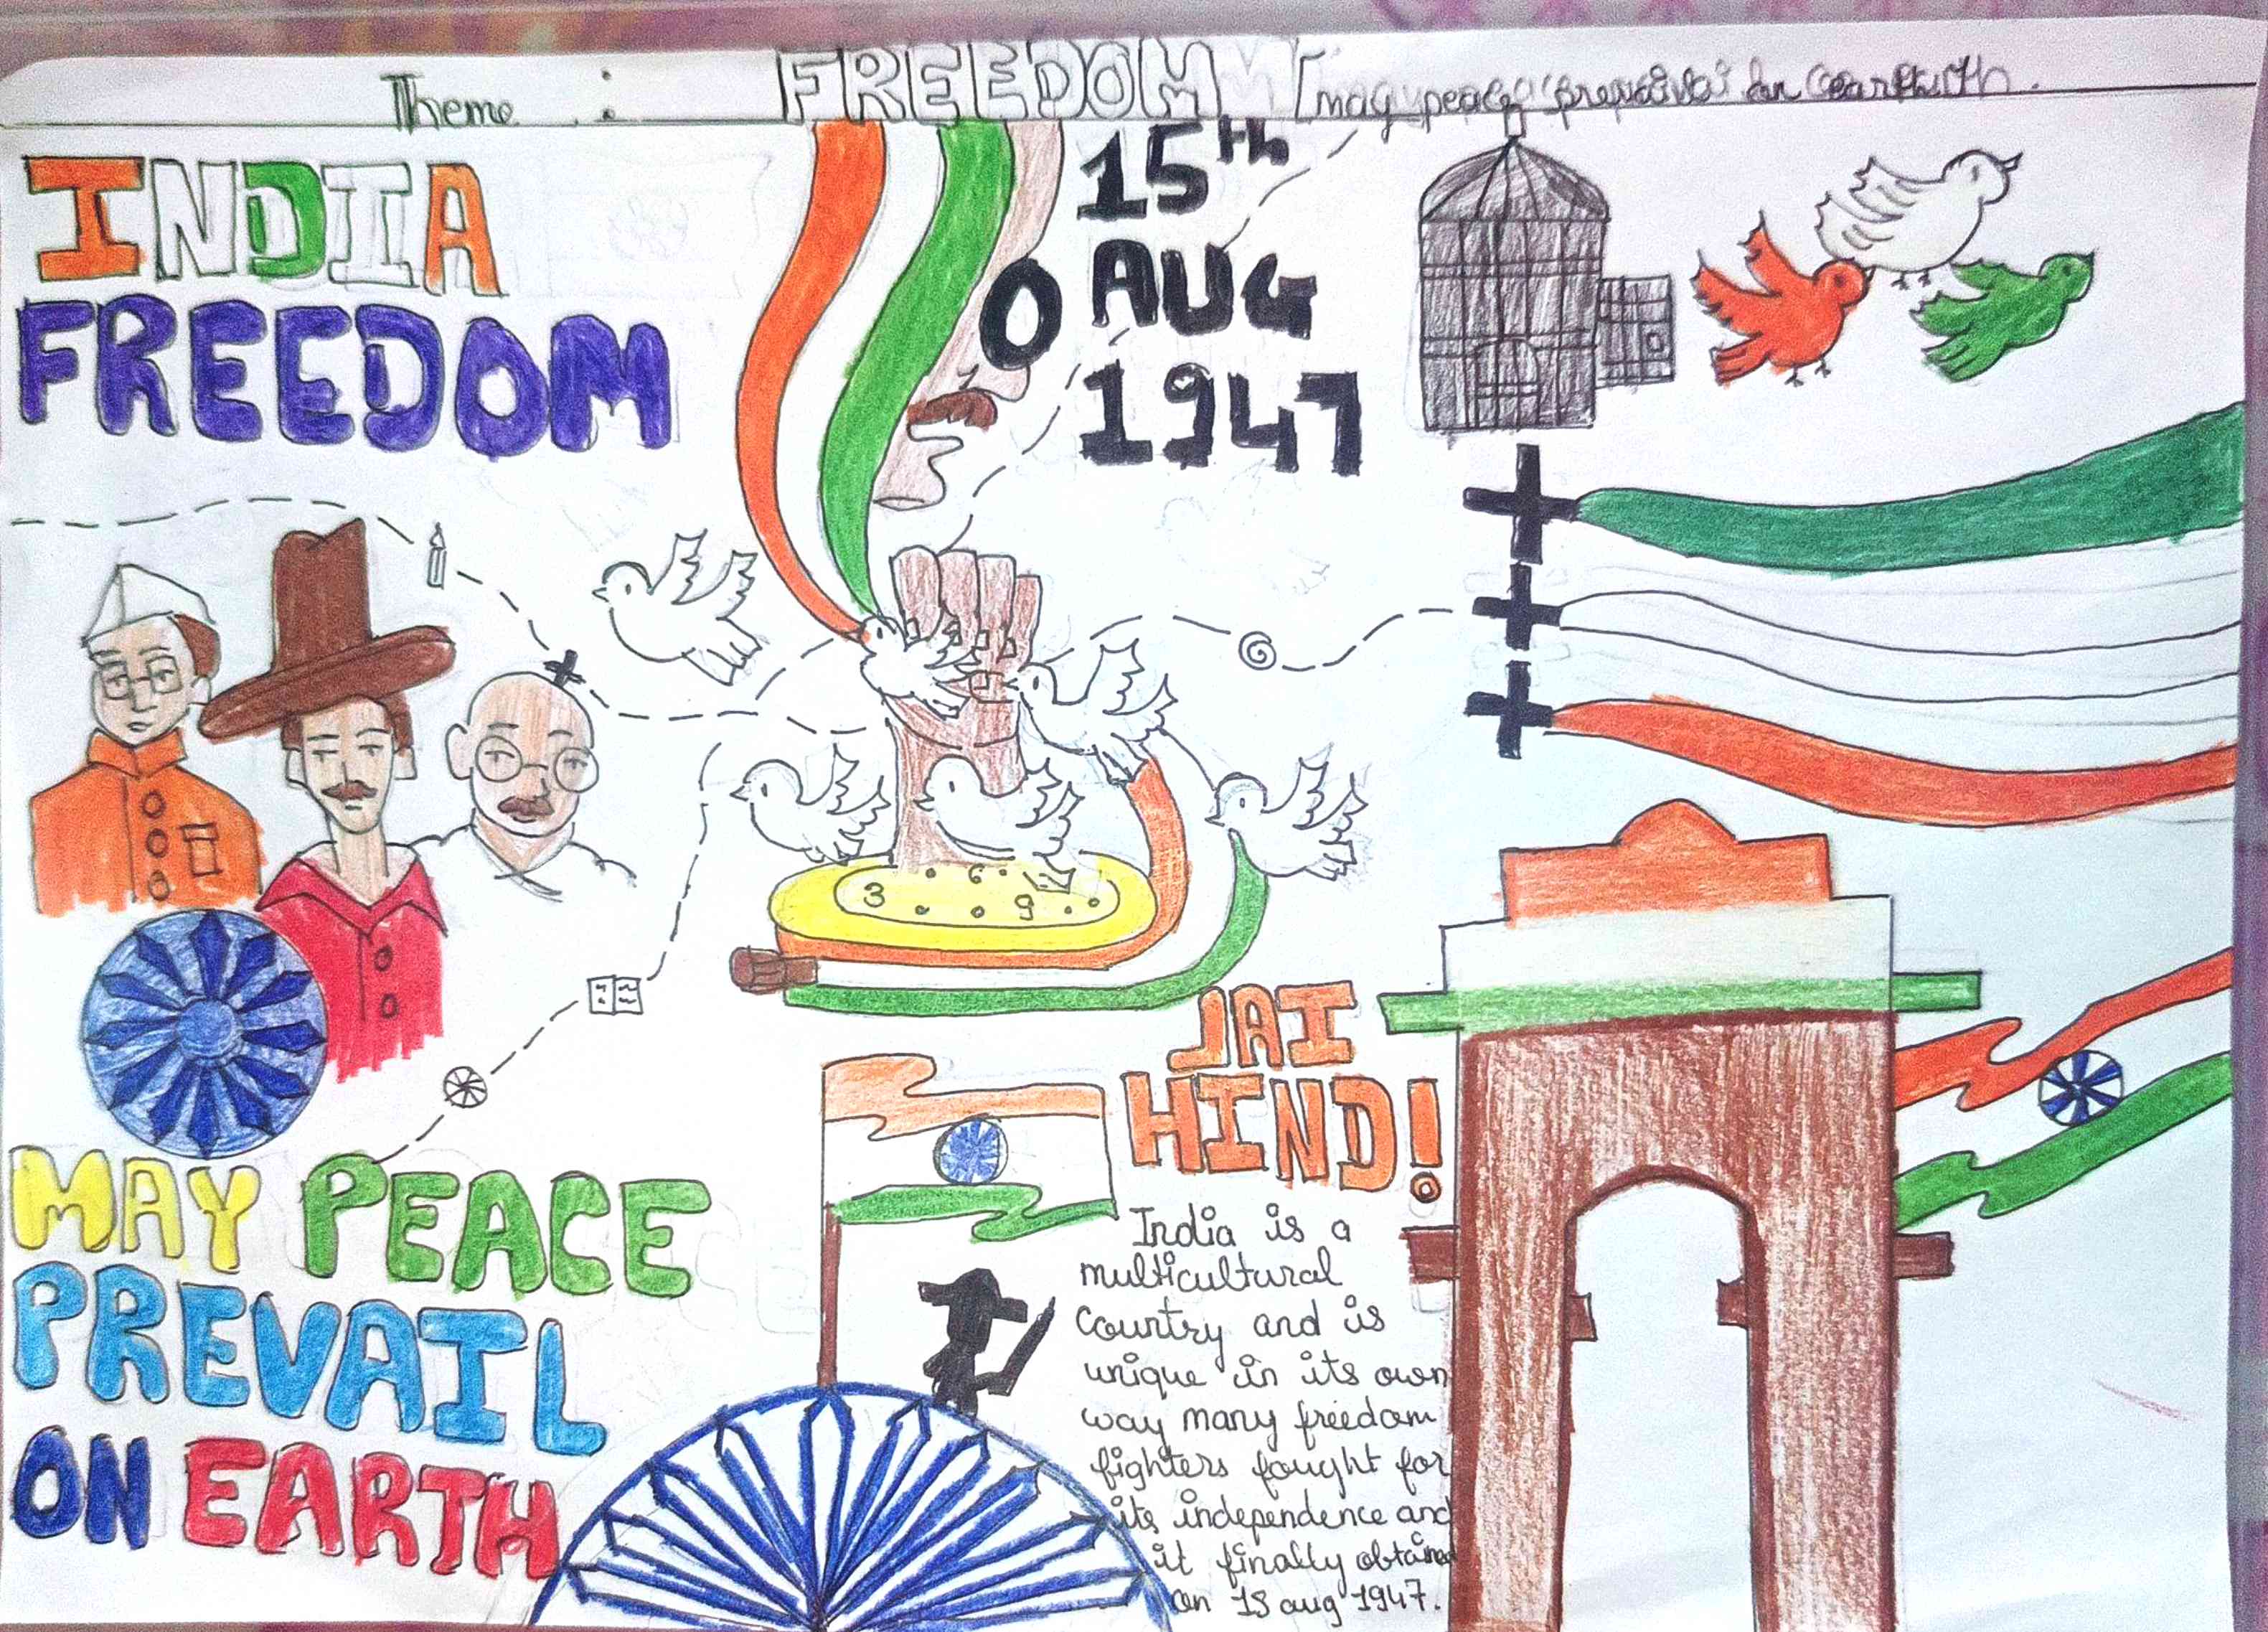 Theme : FREEDOM [may peace prevail on earth.
INDIA
FREEDOM
15th
AUG
1947
3 6
9
JAI
HIND!
India is a
multicultural
country and is
unique in its own
way many freedom
fighters fought for
its independence and
it finally obtained
on 15 aug 1947.
MAY PEACE
PREVAIL
ON EARTH